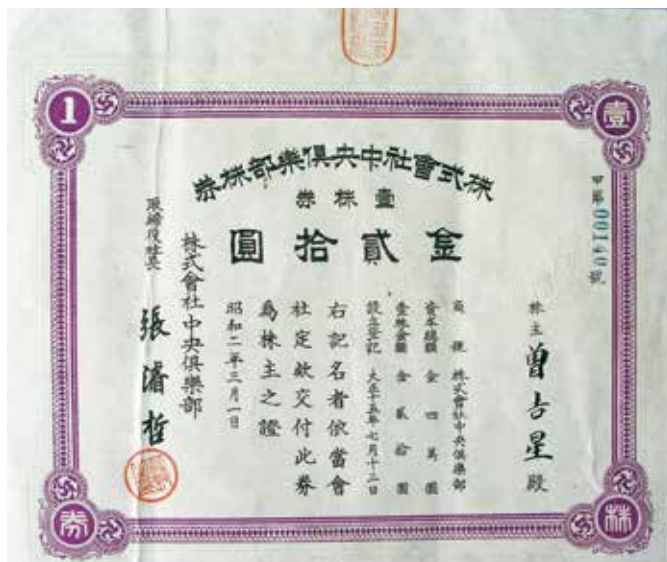 株式會社中央俱樂部株券
壹株券
金貳拾圓
甲第00140號
株主 曾吉星 殿
商號 株式會社中央俱樂部
資本總額 金四萬圓
壹株金額 金貳拾圓
設立登記 大正十五年七月十三日
右記名者依當會
社定款交付此券
為株主之證
昭和二年三月一日
株式會社中央俱樂部
取締役社長 張濬哲
1
壹
券
株